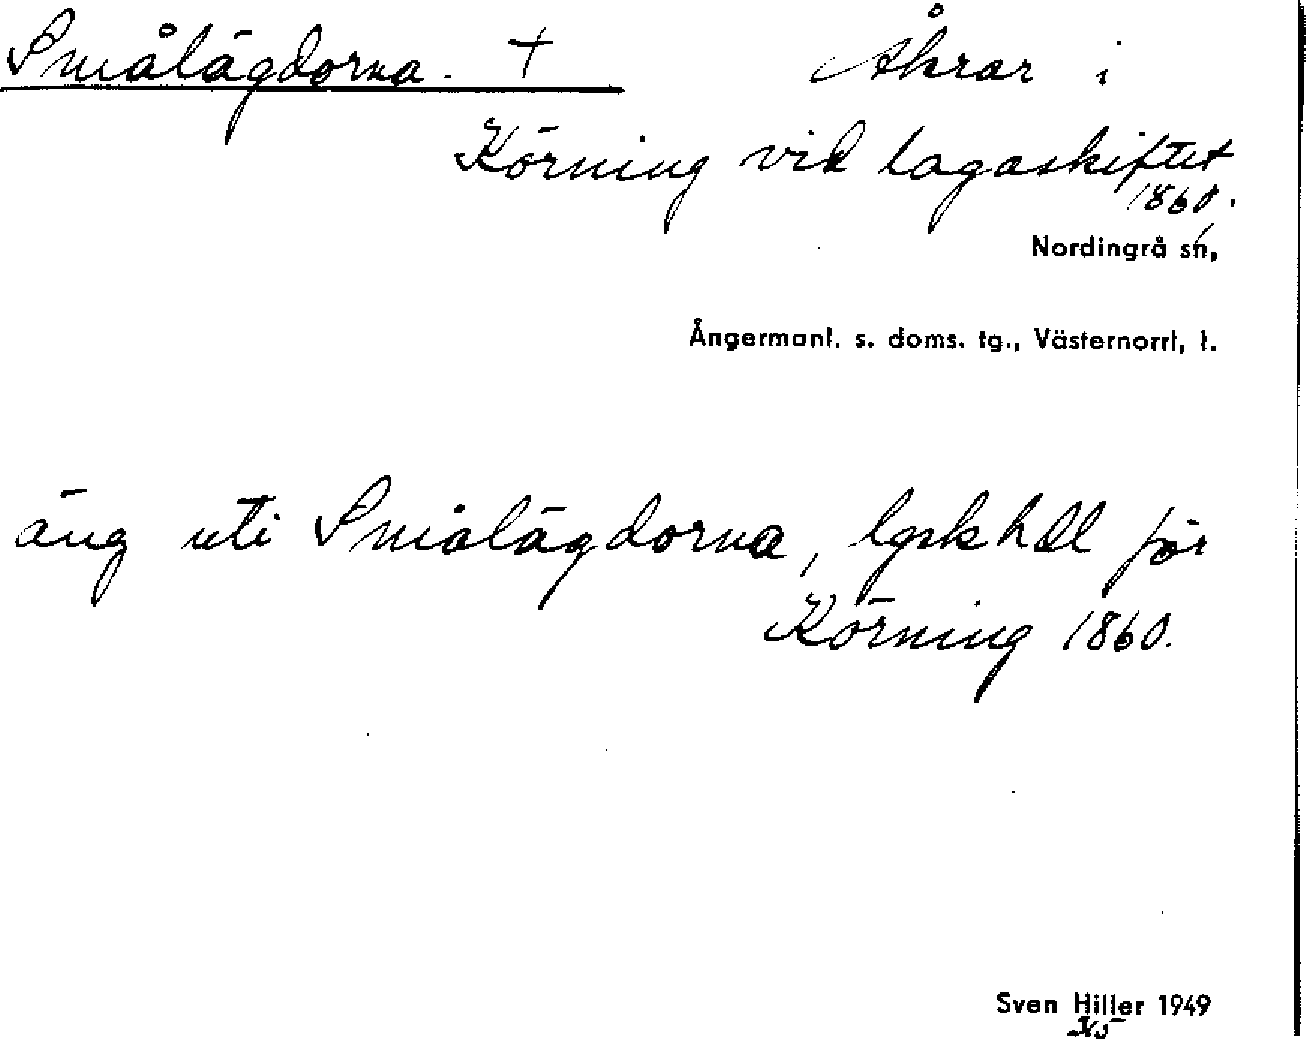 Smålägdorna. † Åkrar i
Körning vid lagaskiftet
1860.
Nordingrå sn,
Ångermanl. s. doms. tg., Västernorrl, l.
äng uti Smålägdorna, lgsk hdl för
Körning 1860.
Sven Hiller 1949